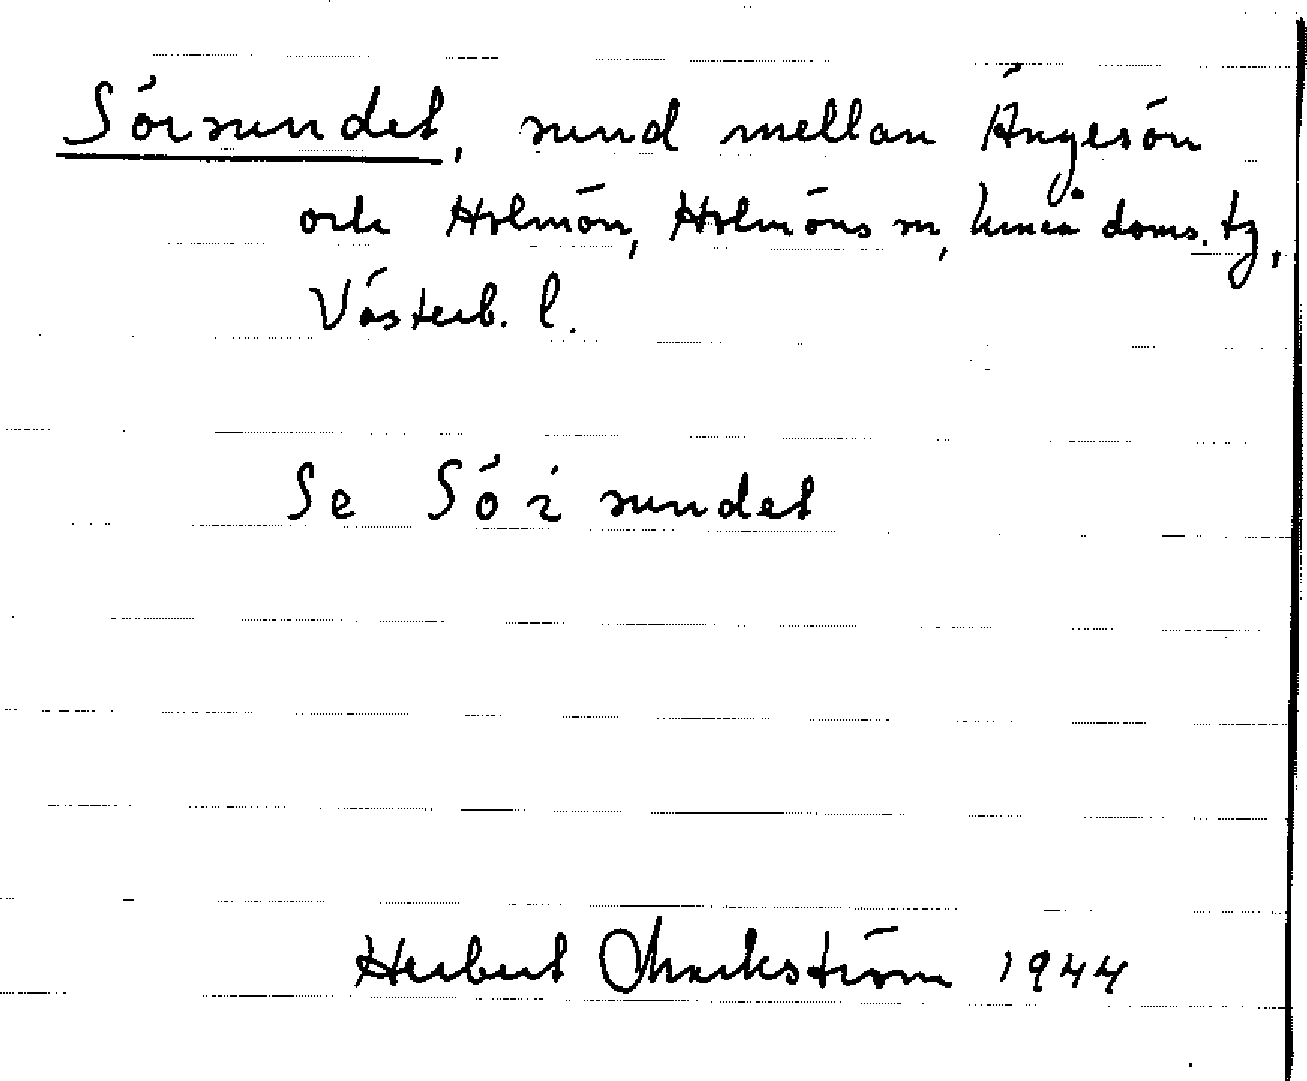 Sörsundet, sund mellan Ängesön
och Holmön, Holmöns sn, Umeå doms. tg,
Västerb. l.
Se Sör sundet
Herbert Markström 1944